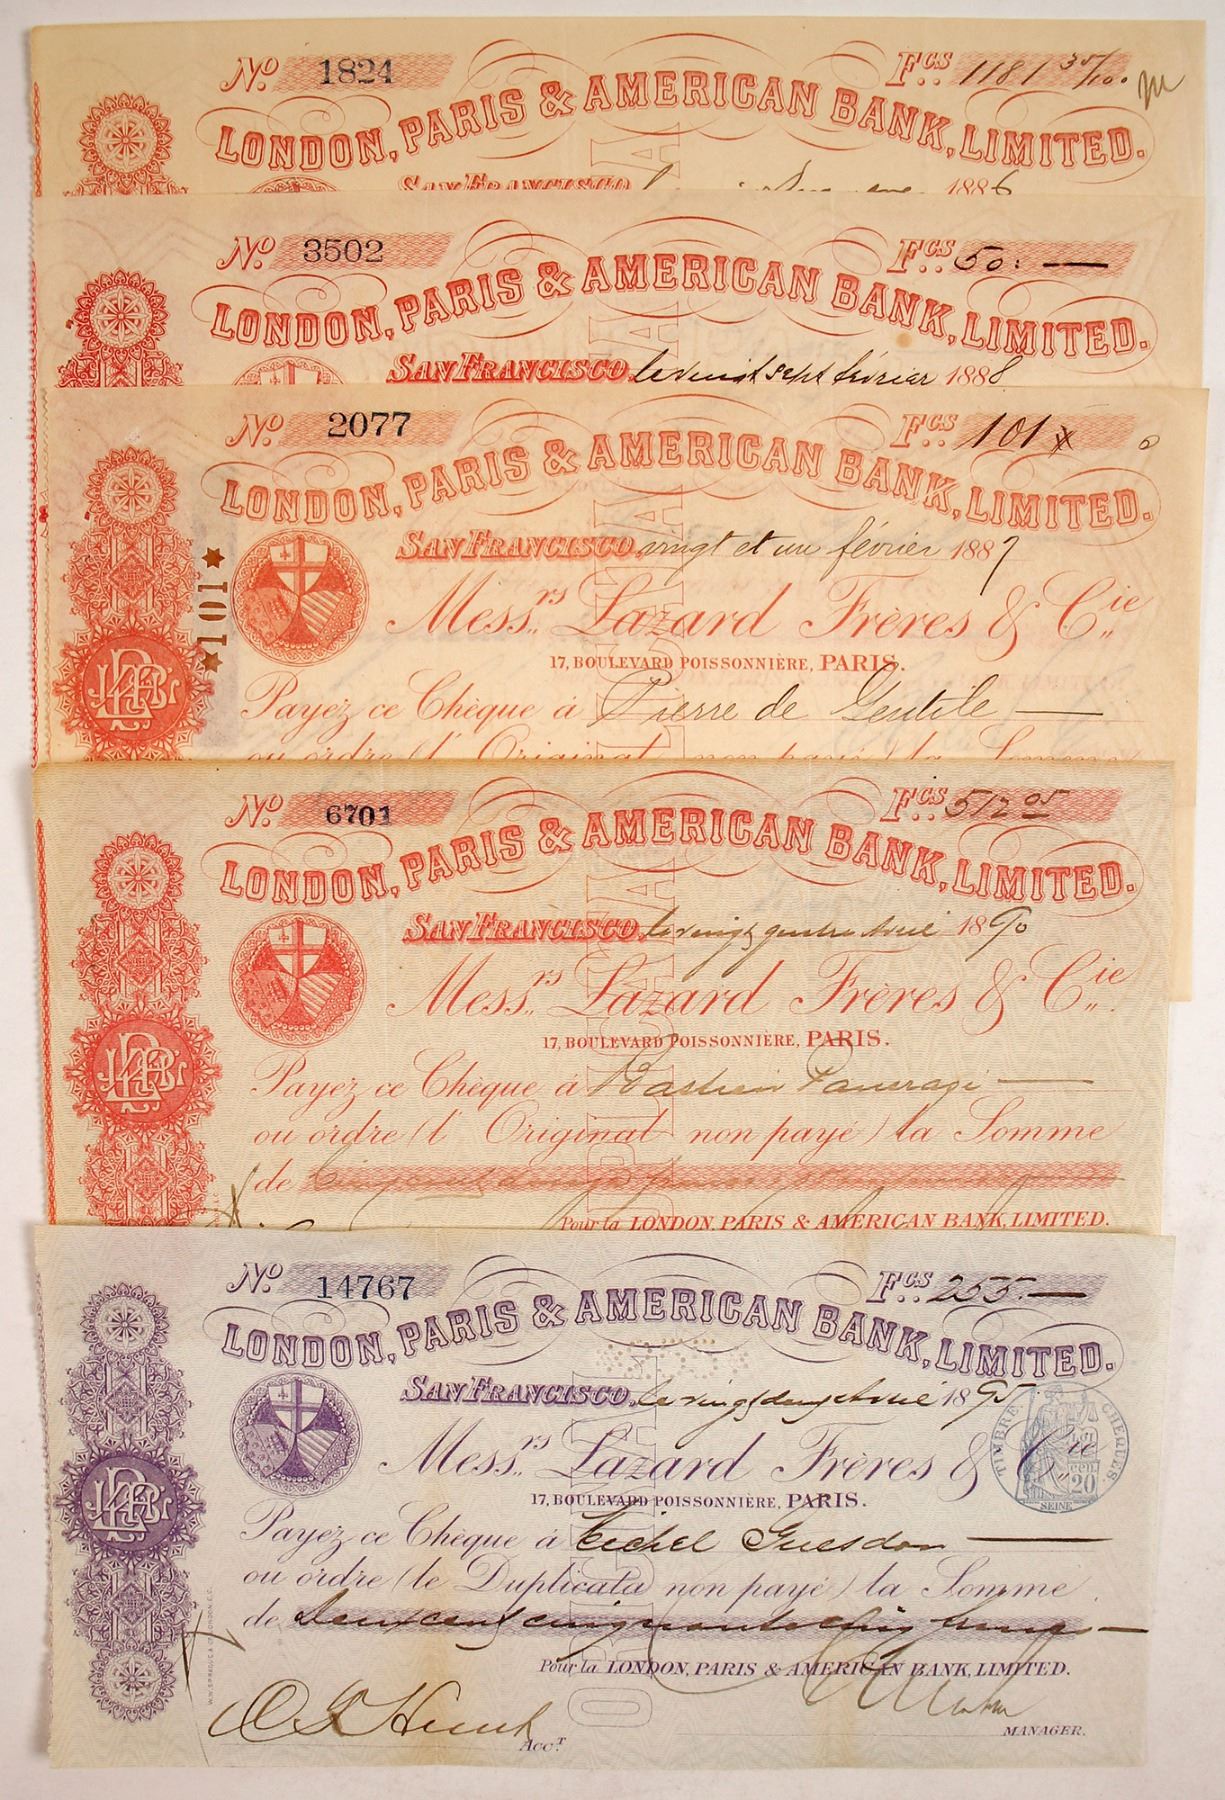 No. 1824 Fcs. 1181 35/100
LONDON, PARIS & AMERICAN BANK, LIMITED.
SAN FRANCISCO 1886
No. 3502 Fcs. 50: —
LONDON, PARIS & AMERICAN BANK, LIMITED.
SAN FRANCISCO, le vingt sept février 1888
No. 2077 Fcs. 101
LONDON, PARIS & AMERICAN BANK, LIMITED.
SAN FRANCISCO, vingt et un février 1887
★101★
Messrs. Lazard Frères & Cie.
17, BOULEVARD POISSONNIÈRE, PARIS.
Payez ce Chèque á Pierre de Gentile —
ou ordre (l' Original non payé) la Somme
No. 6701 Fcs. 512 05
LONDON, PARIS & AMERICAN BANK, LIMITED.
SAN FRANCISCO, le vingt quatre 1890
Messrs. Lazard Frères & Cie.
17, BOULEVARD POISSONNIÈRE, PARIS.
Payez ce Chèque á Bastien —
ou ordre (l' Original non payé) la Somme
de
Pour la LONDON, PARIS & AMERICAN BANK, LIMITED.
No. 14767 Fcs. 255. —
LONDON, PARIS & AMERICAN BANK, LIMITED.
SAN FRANCISCO, le vingt deux 1895
TIMBRE CHEQUES
Messrs. Lazard Frères & Cie
20
SEINE
17, BOULEVARD POISSONNIÈRE, PARIS.
Payez ce Chèque á Michel Guesdon —
ou ordre (le Duplicata non payé) la Somme
de Deux cent cinquante cinq francs —
Pour la LONDON, PARIS & AMERICAN BANK, LIMITED.
ORIGINAL
AccT.
MANAGER.